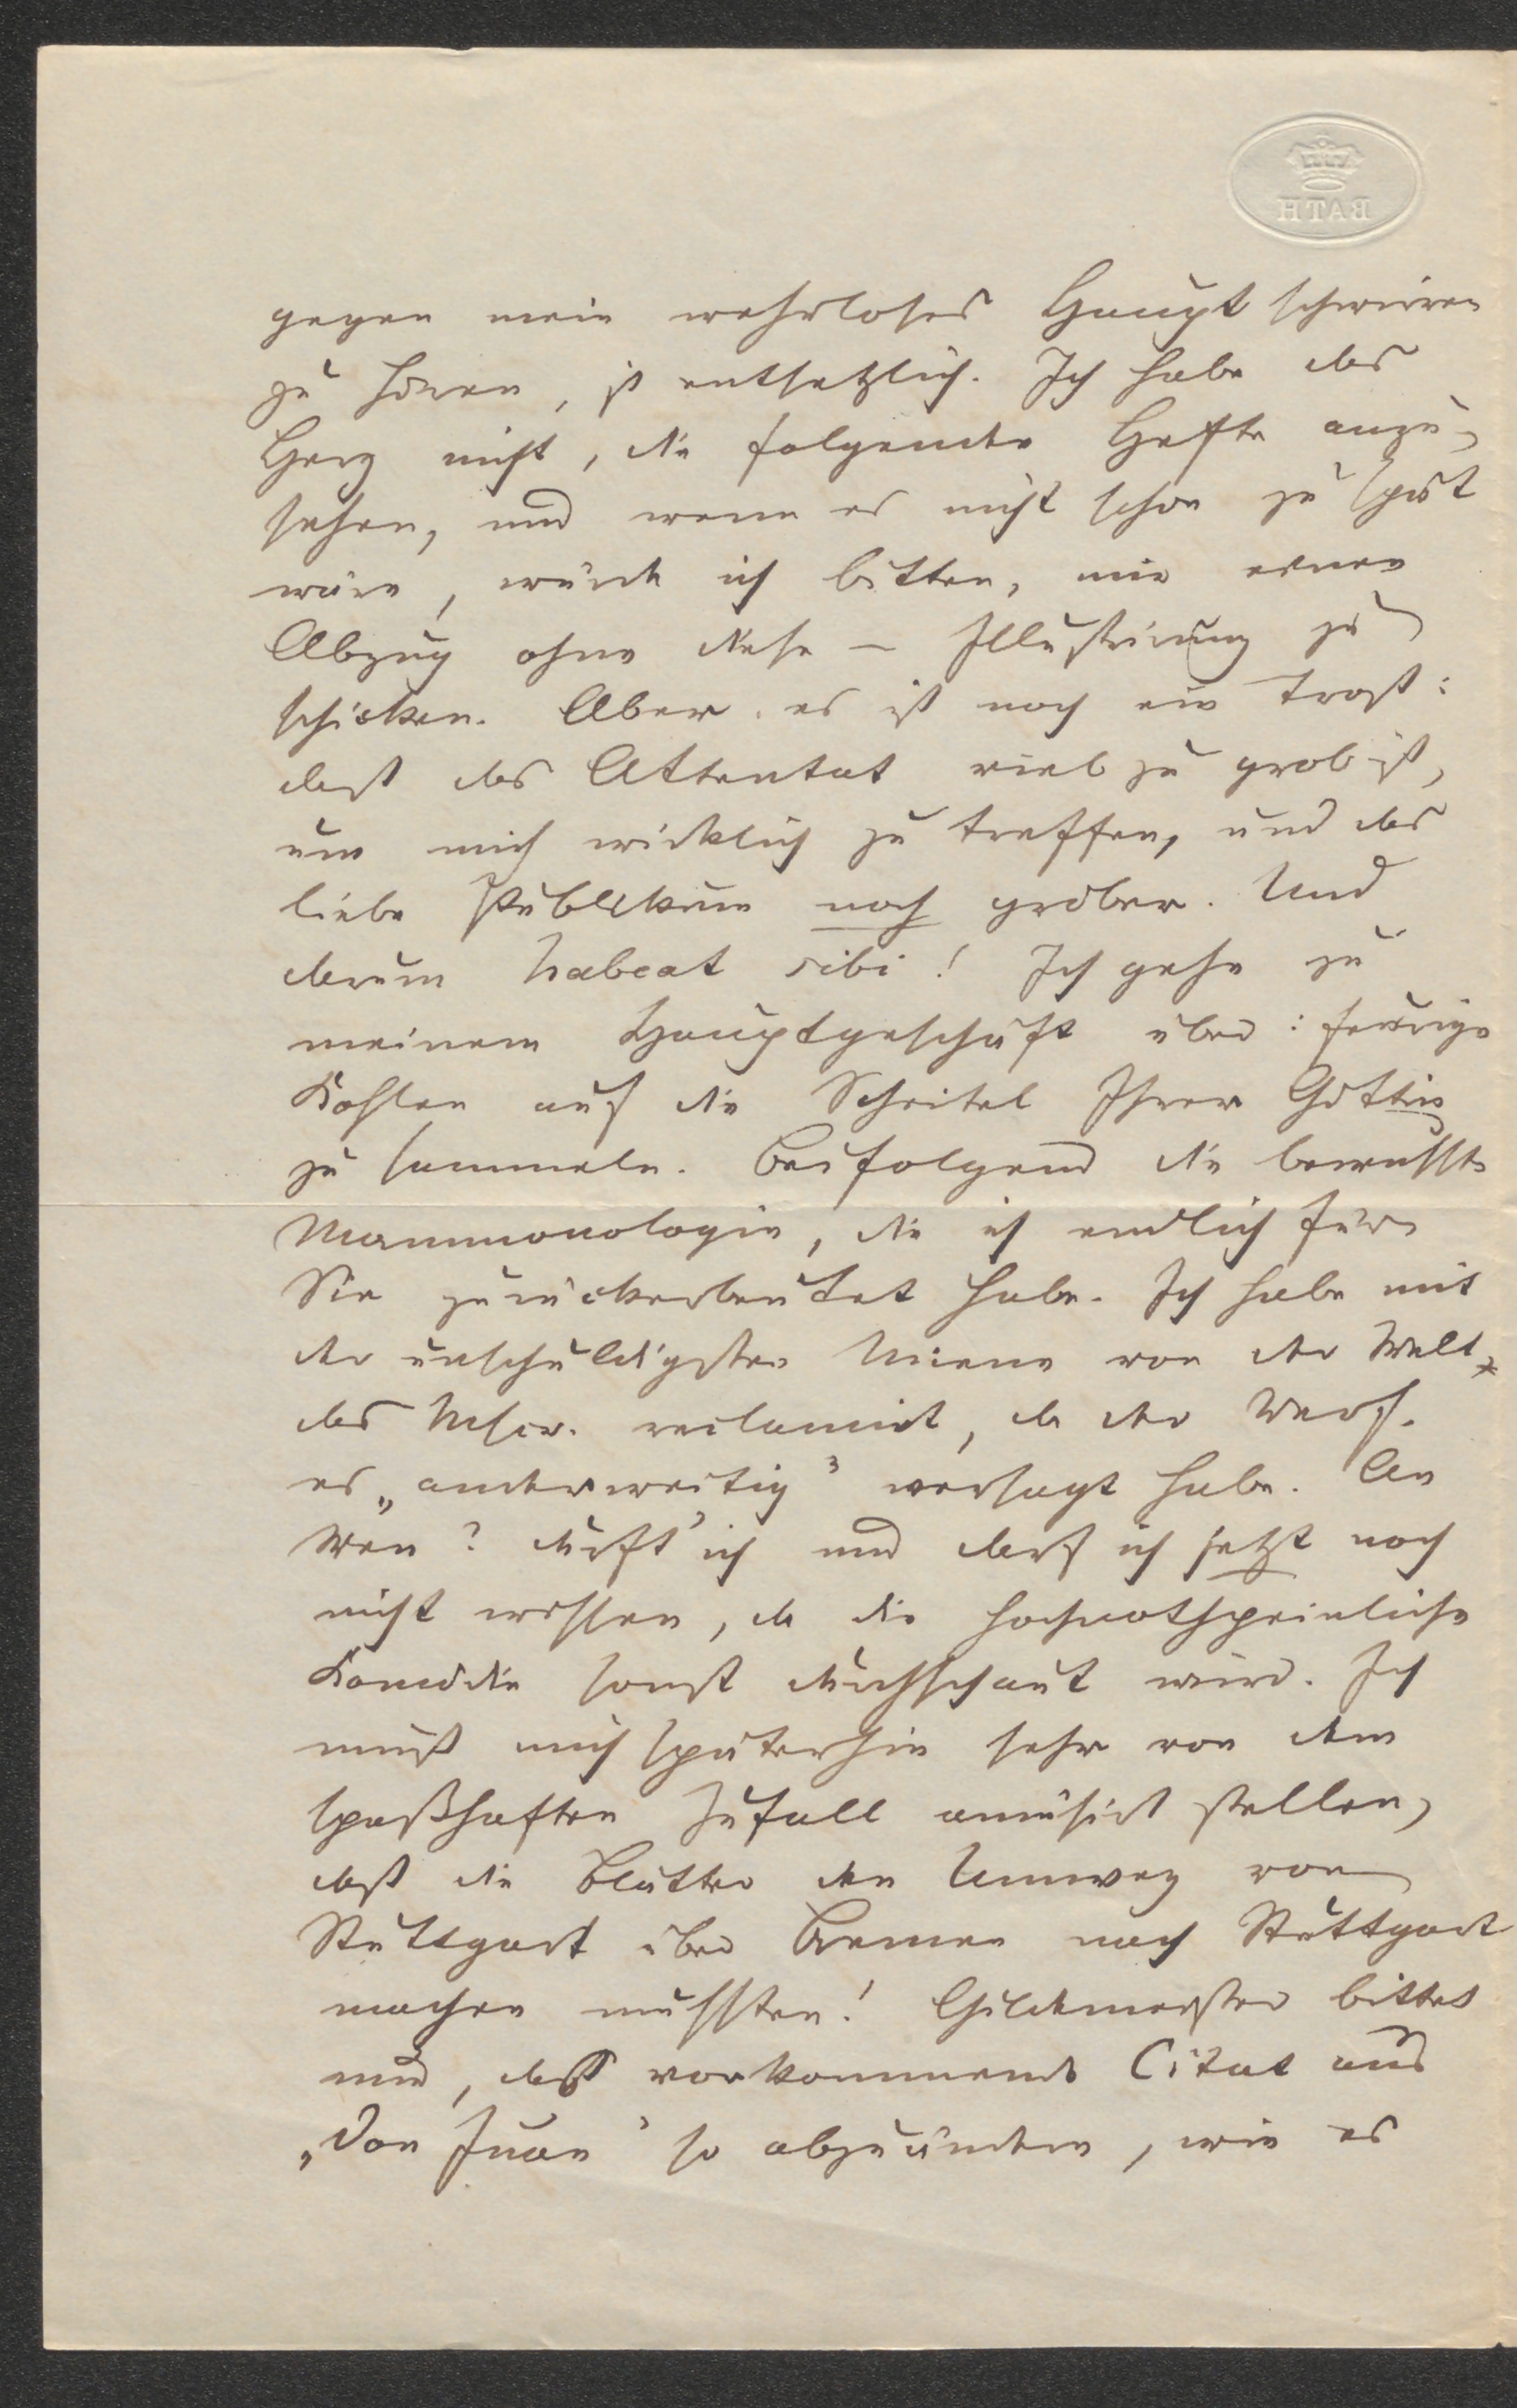 BATH
gegen mein wehrloses Haupt schwirren
zu hören, ist entsetzlich. Ich habe das
Herz nicht, die folgenden Hefte anzu-
sehen, und wenn es nicht schon zu spät
wäre, würde ich bitten, mir einen
Abzug ohne diese – Illustrirung zu
schicken. Aber es ist noch ein Trost:
daß das Attentat viel zu grob ist,
um mich wirklich zu treffen, und das
liebe Publikum noch gröber. Und
darum habeat sibi! Ich gehe zu
meinem Hauptgeschäft über: feurige
Kohlen auf die Scheitel Ihrer Göttin
zu sammeln. Beifolgend die bewußte
Mammonologie, die ich endlich für
Sie zurückerbeutet habe. Ich habe mit
der unschuldigsten Miene von der Welt
das Mscr. reclamirt, da der Verf.
es „anderweitig" versagt habe. An
Wen? durft' ich und darf ich jetzt noch
nicht wissen, da die hochnothpeinliche
Komödie sonst durchschaut wird. Ich
muß mich späterhin sehr von dem
spaßhaften Zufall amüsirt stellen,
daß die Blätter den Umweg von
Stuttgart über Bremen nach Stuttgart
machen mussten! Gildemeister bittet
nur, das vorkommende Citat aus
„Don Juan" so abzuändern, wie es